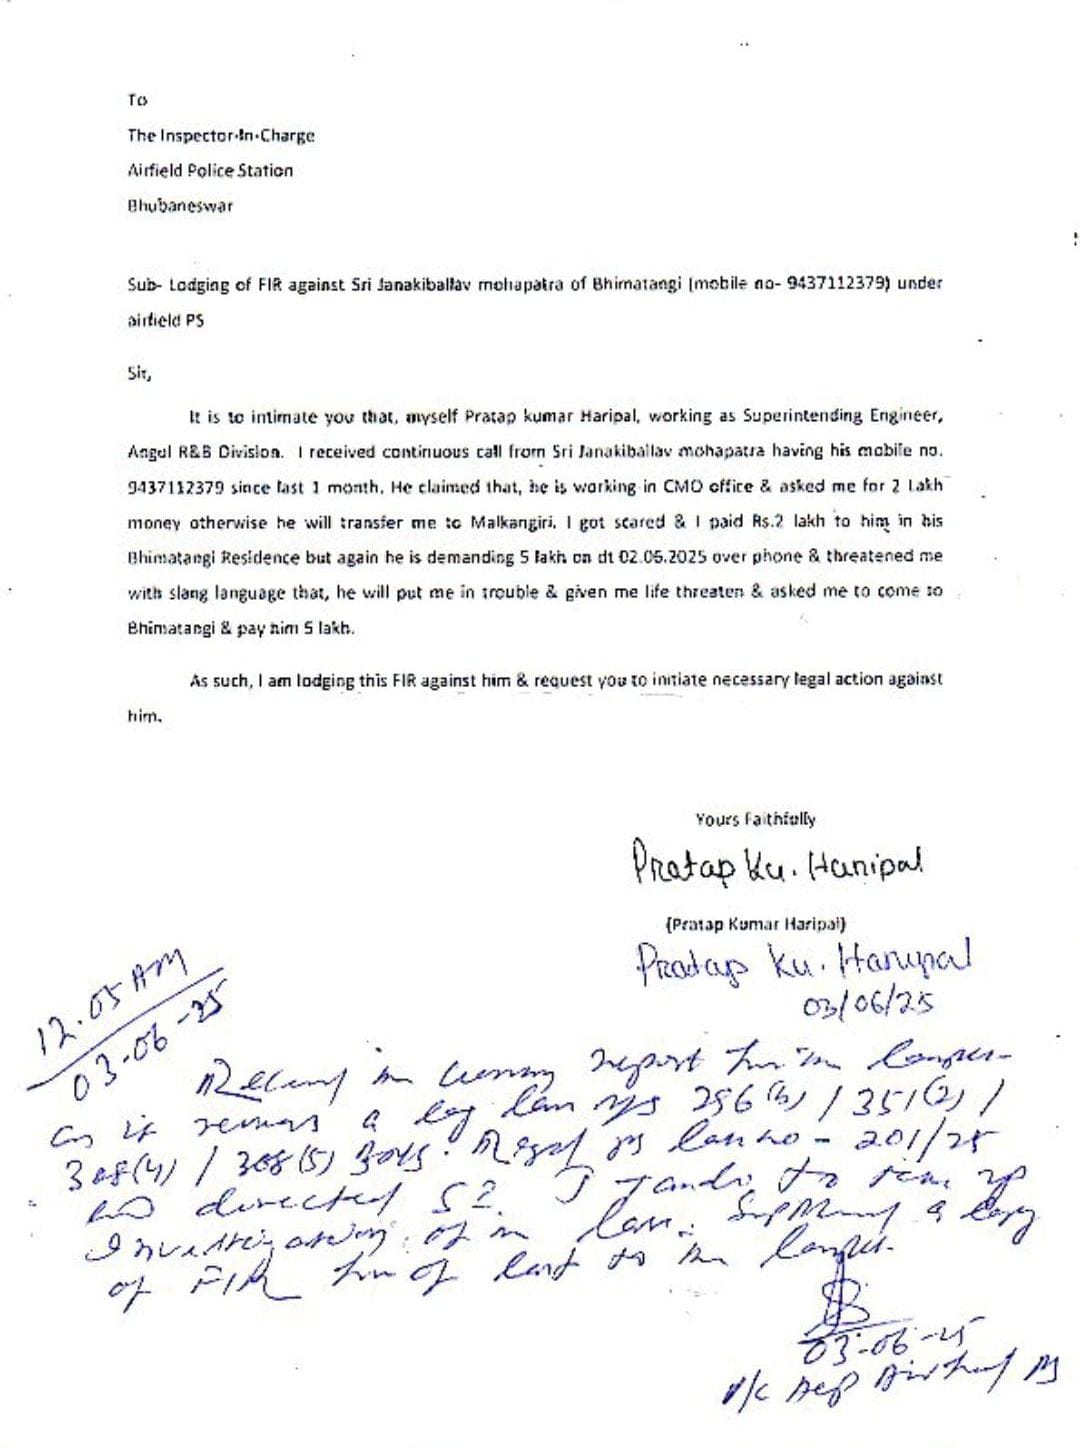 To
The Inspector-In-Charge
Airfield Police Station
Bhubaneswar
Sub- Lodging of FIR against Sri Janakiballav mohapatra of Bhimatangi (mobile no- 9437112379) under
airfield PS
Sir,
It is to intimate you that, myself Pratap kumar Haripal, working as Superintending Engineer,
Angul R&B Division. I received continuous call from Sri Janakiballav mohapatra having his mobile no.
9437112379 since last 1 month. He claimed that, he is working in CMO office & asked me for 2 Lakh
money otherwise he will transfer me to Malkangiri. I got scared & I paid Rs.2 lakh to him in his
Bhimatangi Residence but again he is demanding 5 lakh on dt 02.06.2025 over phone & threatened me
with slang language that, he will put me in trouble & given me life threaten & asked me to come to
Bhimatangi & pay him 5 lakh.
As such, I am lodging this FIR against him & request you to initiate necessary legal action against
him.
Yours Faithfully
Pratap Ku. Haripal
(Pratap Kumar Haripal)
Pratap Ku. Haripal
03/06/25
12.05 AM
03-06-25
report
as it a 296(b) / 351(2) /
308(4) / 308(5) BNS. PS no - 201/25
and directed SI. J to take up
Investigation of a copy
of FIR of to the
03-06-25
PS